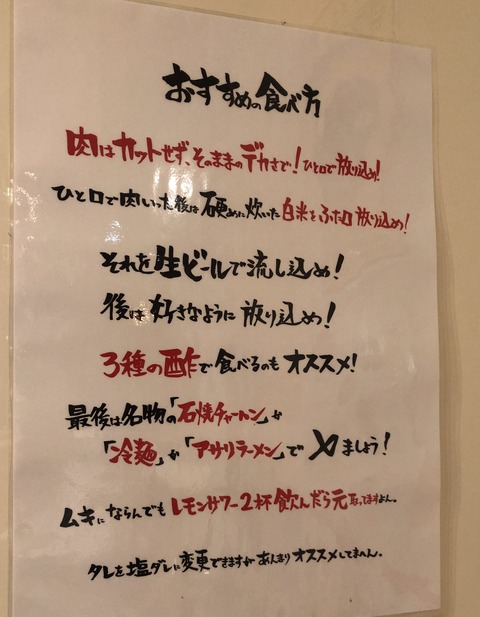 おすすめの食べ方
肉はカットせず、そのままのデカさで!ひと口で放り込め!
ひと口で肉いった後は硬めに炊いた白米をふた口放り込め!
それを生ビールで流し込め!
後は好きなように放り込め!
3種の酢で食べるのもオススメ!
最後は名物の「石焼チャーハン」か
「冷麺」か「アサリラーメン」で〆ましょう!
ムキにならんでもレモンサワー2杯飲んだら元取ってますよん。
タレを塩ダレに変更できますがあんまりオススメしてません。